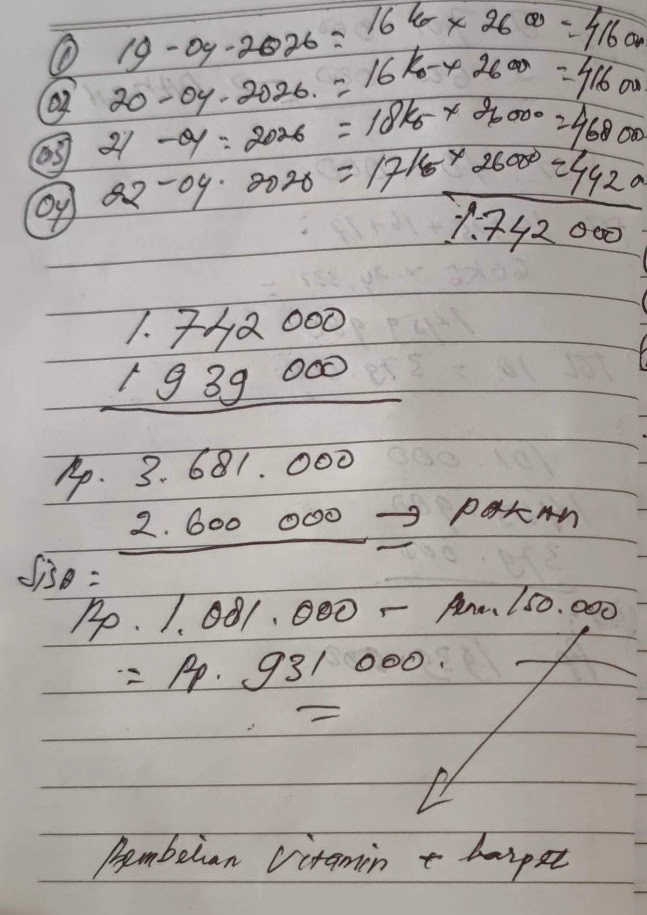 ① 19-04-2026 = 16 kg × 26 000 = 416 000
02 20-04-2026. = 16 kg × 26000 = 416 000
03 21-04-2026 = 18 kg × 26000 = 468 000
04 22-04-2026 = 17 kg × 26000 = 442 0
1.742 000
1.742 000
1 939 000
Rp. 3.681.000
2.600 000 → PAKAN
Sisa =
Rp. 1.081.000 - 150.000
= Rp. 931 000.
Pembelian Vitamin +